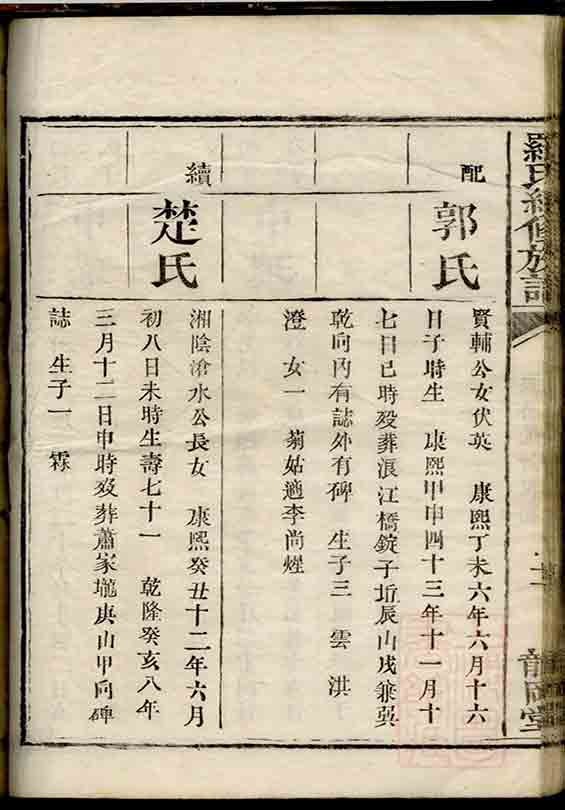 羅氏續修族譜
配
郭氏
賢輔公女伏英　康熙丁未六年六月十六
日子時生　康熙甲申四十三年十一月十
七日巳時歿葬浪江橋錠子坵辰山戌兼巽
乾向內有誌外有碑　生子三　雲　洪
澄　女一　菊姑適李尚煋
續
楚氏
湘陰滄水公長女　康熙癸丑十二年六月
初八日未時生壽七十一　乾隆癸亥八年
三月十二日申時歿葬蕭家壠庚山甲向碑
誌　生子一　霖